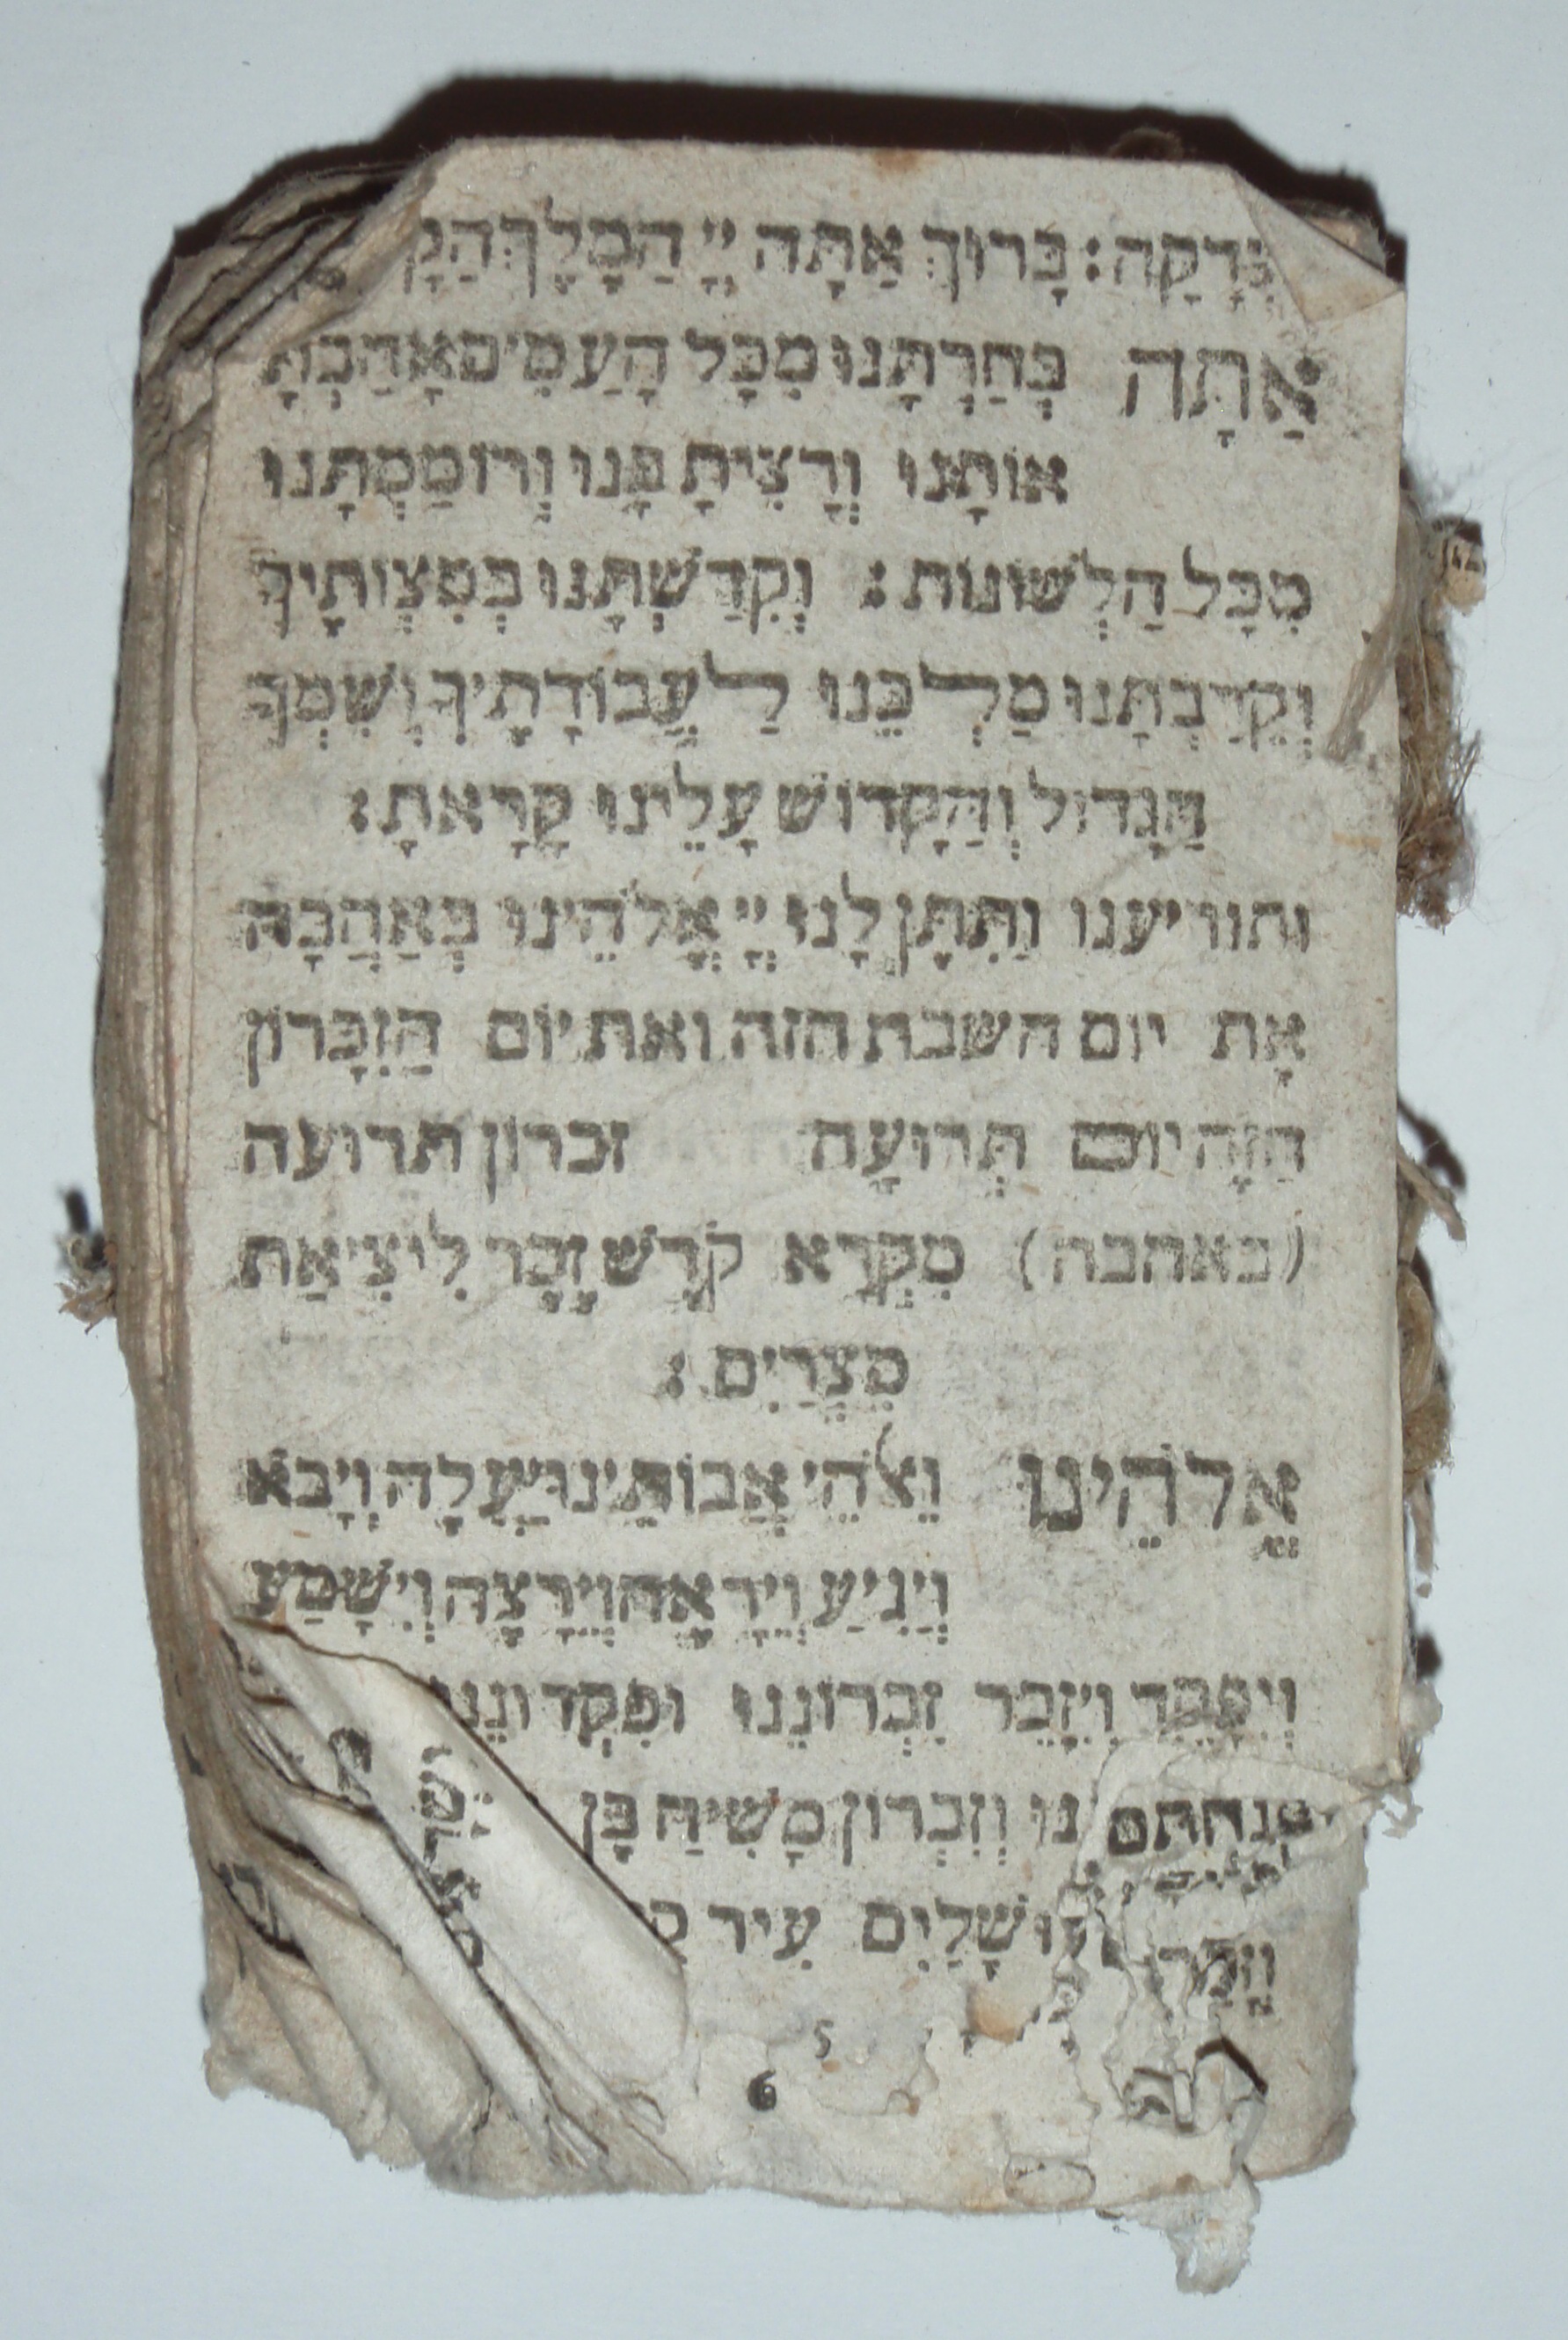 בָּרוּךְ אַתָּה יְיָ הַמֶּלֶךְ
אַתָּה בְּחַרְתָּנוּ מִכָּל הָעַמִּי׳ם אָהַבְתָּ
אוֹתָנוּ וְרָצִיתָ בָּנוּ וְרוֹמַמְתָּנוּ
מִכָּל הַלְשׁוֹנוֹת: וְקִדַּשְׁתָּנוּ בְּמִצְוֹתֶיךָ
וְקֵרַבְתָּנוּ מַלְכֵּנוּ לַעֲבוֹדָתֶיךָ וְשִׁמְךָ
הַגָּדוֹל וְהַקָּדוֹשׁ עָלֵינוּ קָרָאתָ:
ותודיענו וַתִּתֶּן לָנוּ יְיָ אֱלֹהֵינוּ בְּאַהֲבָה
אֶת יום השבת הזה ואת יוֹם הַזִּכָּרוֹן
הַזֶּה יוֹם תְּרוּעָה זכרון תרועה
(באהבה) מִקְרָא קֹדֶשׁ זֵכֶר לִיצִיאַת
מִצְרַיִם:
אֱלֹהֵינוּ וֵאלֹהֵי אֲבוֹתֵינוּ יַעֲלֶה וְיָבֹא
וְיַגִּיעַ וְיֵרָאֶה וְיֵרָצֶה וְיִשָּׁמַע
וְיִפָּקֵד וְיִזָּכֵר זִכְרוֹנֵנוּ וּפִקְדוֹנֵנוּ
נוּ וְזִכְרוֹן מָשִׁיחַ בֶּן
וּשָׁלַיִם עִיר
5
6